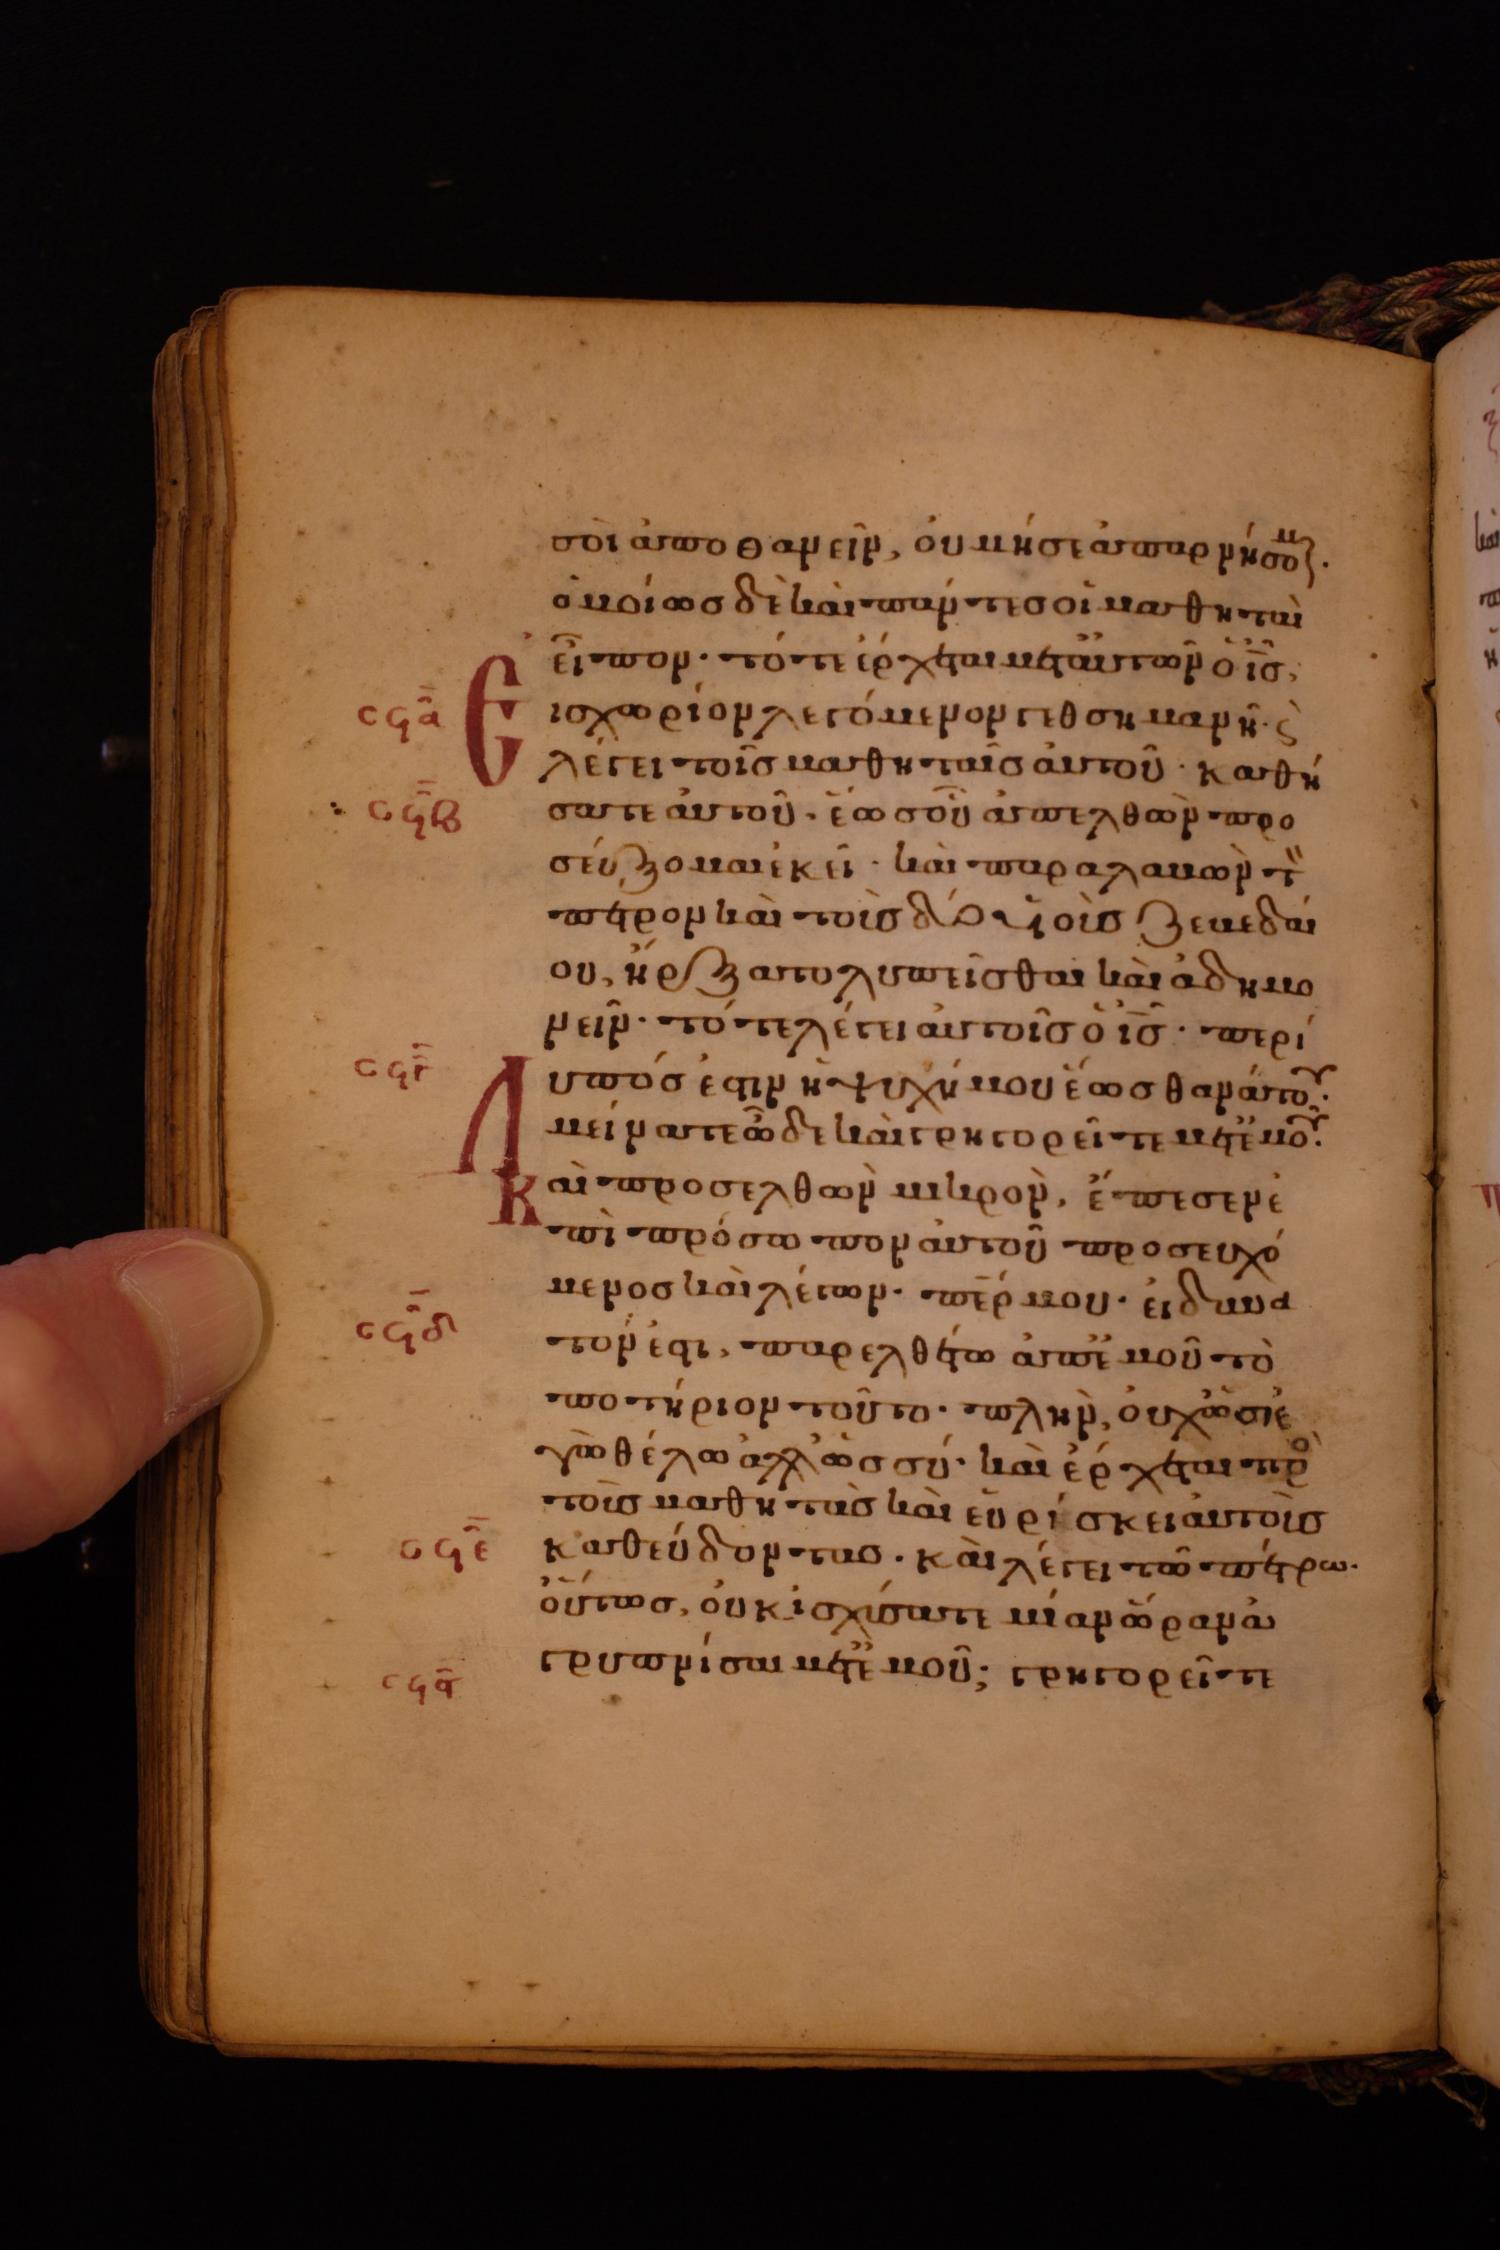 σοὶ ἀποθανεῖν, οὐ μή σε ἀπαρνήσομ.
ὁμοίως δὲ καὶ πάντες οἱ μαθηταὶ
εἶπον· τότε ἔρχεται μετ' αὐτῶν ὁ ἰ̅ς̅,
Εἰς χωρίον λεγόμενον γεθσημανῆ· ϗ
σϟα
λέγει τοῖς μαθηταῖς αὐτοῦ· καθή
σϟβ
σατε αὐτοῦ· ἕως οὗ ἀπελθὼν προ
σεύξομαι ἐκεῖ· καὶ παραλαβὼν τ
πέτρον καὶ τοὺς δύο υἱοὺς ζεβεδαί
ου, ἤρξατο λυπεῖσθαι καὶ ἀδημο
νεῖν· τότε λέγει αὐτοῖς ὁ ἰ̅ς̅· περί
σϟγ
λυπός ἐστιν ἡ ψυχή μου ἕως θανάτου·
μείνατε ὧδε καὶ γρηγορεῖτε μετ' ἐμοῦ·
Καὶ προσελθὼν μικρὸν, ἔπεσεν ἐ
πὶ πρόσωπον αὐτοῦ προσευχό
μενος καὶ λέγων· π̅ε̅ρ μου· εἰ δυνα
σϟδ
τόν ἐστι, παρελθέτω ἀπ' ἐμοῦ τὸ
ποτήριον τοῦτο· πλὴν, οὐχ ὡς ἐ
γὼ θέλω ἀλλ' ὡς σύ· καὶ ἔρχεται πρὸ
τοὺς μαθητὰς καὶ εὑρίσκει αὐτοὺς
σϟε
καθεύδοντας· καὶ λέγει τῶ πέτρω·
οὕτως, οὐκ ἰσχύσατε μίαν ὥραν
γρυπνίσαι μετ' ἐμοῦ; γρηγορεῖτε